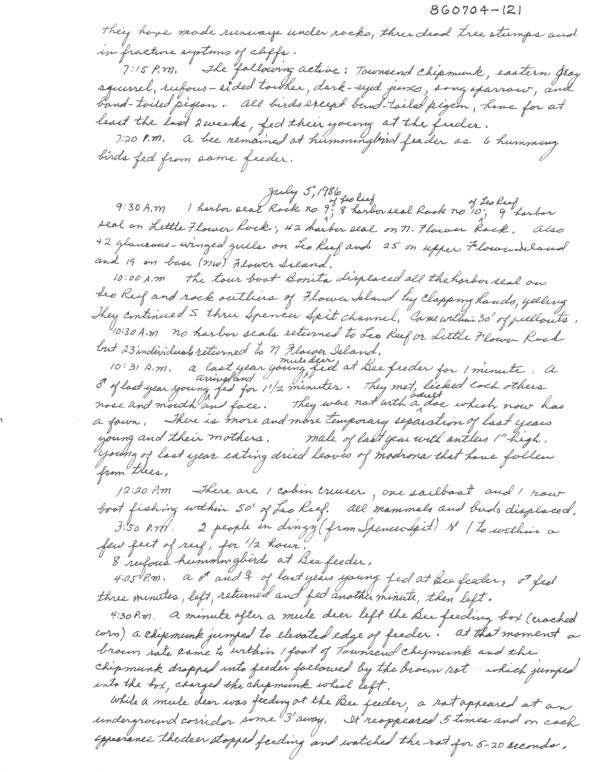 860704-121
they have made runways under rocks, three dead tree stumps and
in fracture systems of cliffs.
7:15 P.M. The following active: Townsend chipmunk, eastern gray
squirrel, rufous-sided towhee, dark-eyed junco, song sparrow, and
band-tailed pigeon. All birds except band-tailed pigeon, have for at
least the last 2 weeks, fed their young at the feeder.
7:20 P.M. A bee remained at hummingbird feeder as 6 humming
birds fed from same feeder.
July 5, 1986
of Leo Reef of Leo Reef
9:30 A.M 1 harbor seal Rock no 9; 8 harbor seal Rock no 10; 9 harbor
seal on Little Flower Rock; 42 harbor seal on N. Flower Rock. Also
42 glaucous-winged gulls on Leo Reef and 25 on upper Flower Island
and 19 on base (NW) Flower Island.
10:00 A.M the tour boat Bonita displaced all the harbor seal on
Leo Reef and rock outliers of Flower Island by clapping hands, yelling
They continued S thru Spencer Spit channel, Came within 30' of pullouts.
10:30 A.M no harbor seals returned to Leo Reef or Little Flower Rock
but 23 individuals returned to N Flower Island.
mule deer
10:31 A.M. a last year young fed at Bee feeder for 1 minute. A
arrived and
♂ of last year young fed for 1 1/2 minutes. They met, licked each others
adult
nose and mouth and face. They were not with a doe which now has
a fawn. There is more and more temporary separation of last years
young and their mothers. Male of last year with antlers 1" high.
Young of last year eating dried leaves of madrona that have fallen
from trees.
12:20 P.M There are 1 cabin cruiser, one sailboat and 1 row
boat fishing within 50' of Leo Reef. All mammals and birds displaced.
3:50 P.M. 2 people in dingy (from Spencer Spit) N 1 to within a
few feet of reef, for 1/2 hour.
8 rufous hummingbirds at Bee feeder.
4:05 P.M. a ♂ and ♀ of last years young fed at Bee feeder, ♂ fed
three minutes, left, returned and fed another minute, then left.
4:30 P.M. A minute after a mule deer left the Bee feeding box (cracked
corn) a chipmunk jumped to elevated edge of feeder. At that moment a
brown rat came to within 1 foot of Townsend chipmunk and the
chipmunk dropped into feeder followed by the brown rat which jumped
into the box, charged the chipmunk which left.
While a mule deer was feeding at the Bee feeder, a rat appeared at an
underground corridor some 3' away. It reappeared 5 times and on each
appearance the deer stopped feeding and watched the rat for 5-20 seconds.